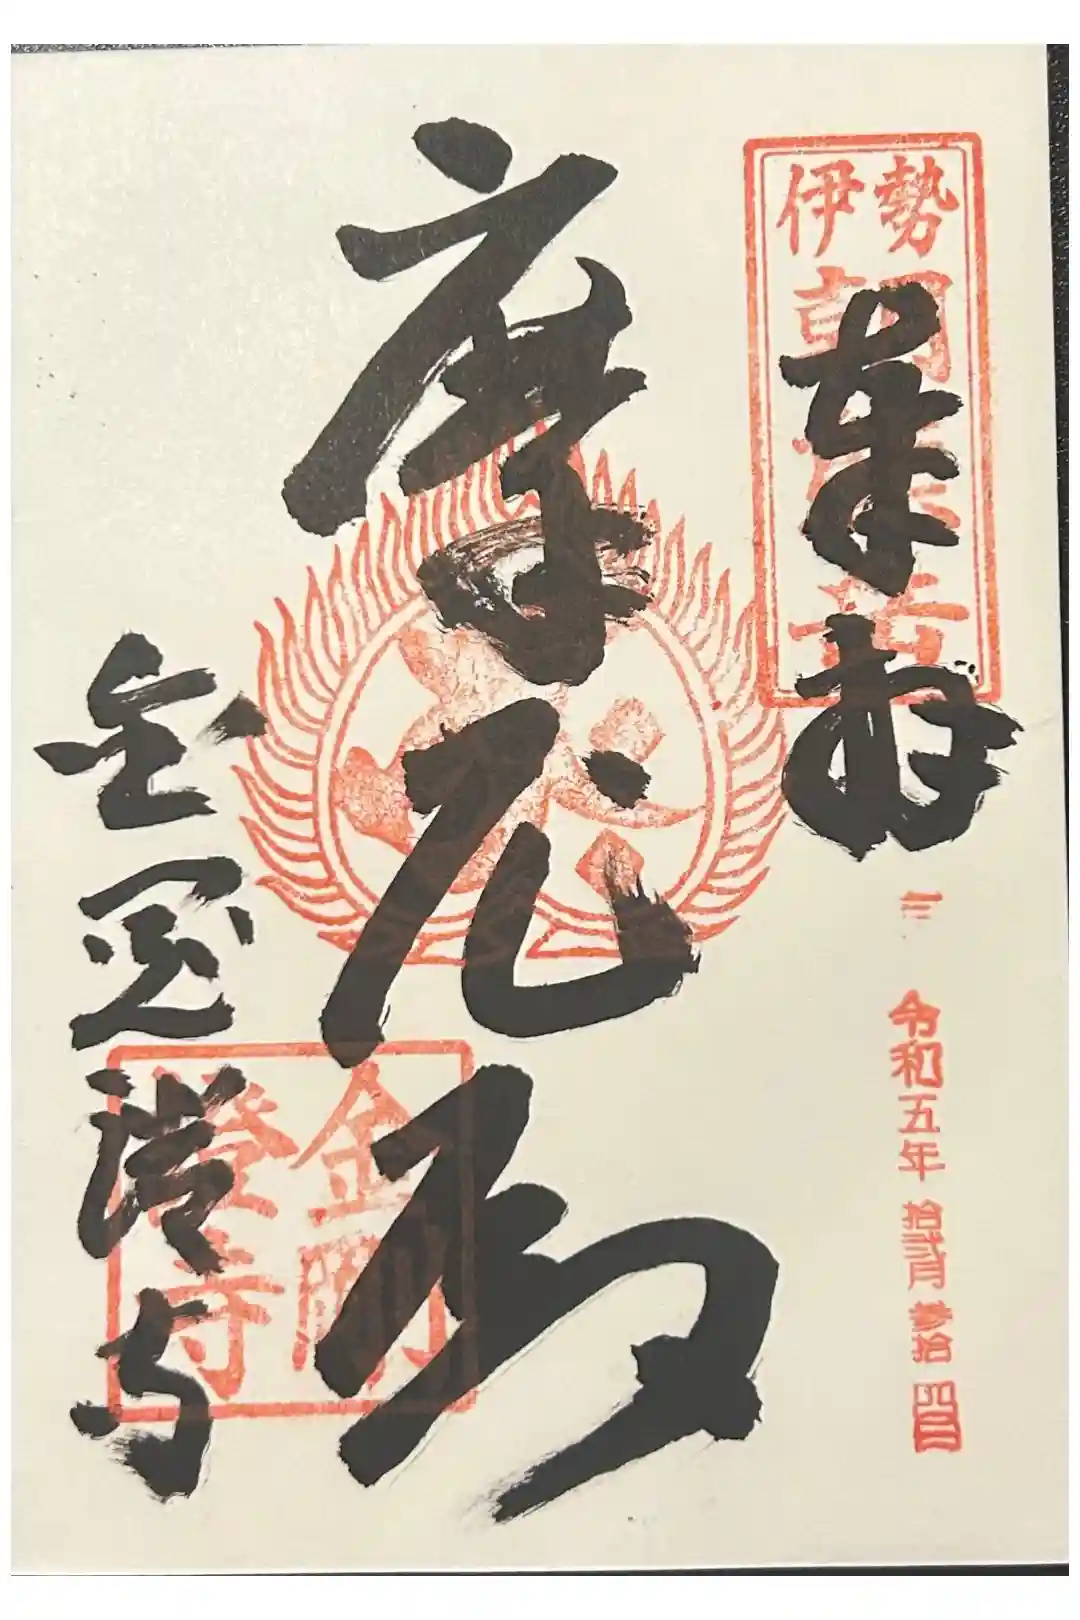 伊勢
朝熊岳
奉拝
令和五年 拾弐月 参拾
摩尼殿
金剛證寺
金剛
證寺